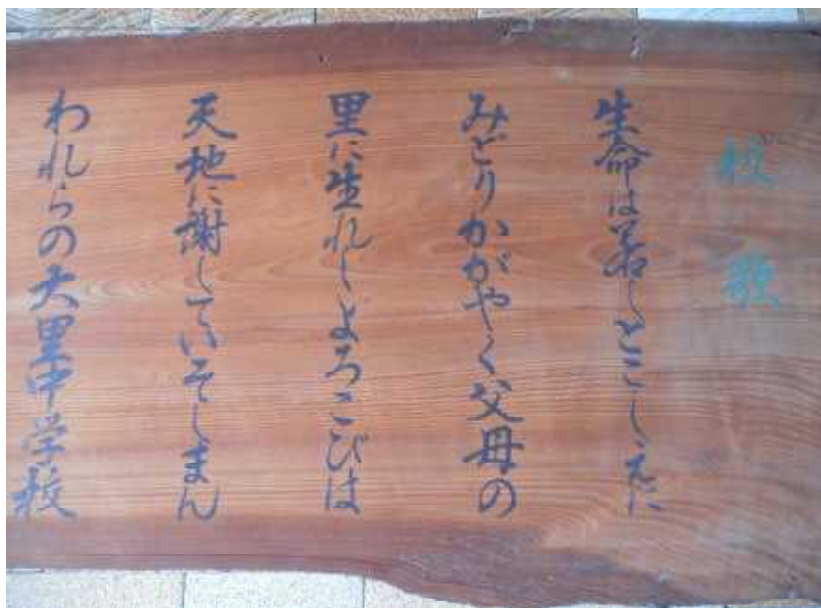 校歌
生命は若しとこしえに
みどりかがやく父母の
里に生れしよろこびは
天地に謝していそしまん
われらの大里中学校